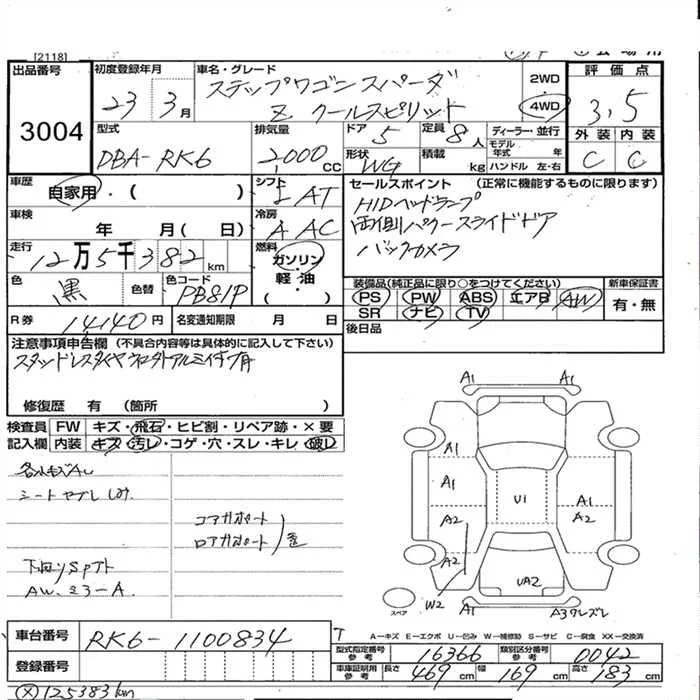 [2118]
出品番号
3004
初度登録年月
23 3月
車名・グレード
ステップワゴンスパーダ
Z クールスピリット
2WD
4WD
評価点
3,5
外装 内装
C C
型式
DBA-RK6
排気量
2000cc
ドア 5
定員 8人
形状 WG
積載 kg
ディーラー・並行
モデル年式 年
ハンドル 左・右
車歴
自家用・( )
シフト
I AT
車検
年 月( 日)
冷房
A AC
走行
12万5千382km
燃料
ガソリン・軽油・( )
色
黒
色替
色コード
PB81P
R券
14140円
名変通知期限 月 日
セールスポイント (正常に機能するものに限ります)
HIDヘッドランプ
両側パワースライドドア
バックカメラ
装備品(純正品に限り○をつけてください)
PS PW ABS エアB AW
SR ナビ TV
新車保証書
有・無
後日品
注意事項申告欄 (不具合内容等は具体的に記入して下さい)
修復歴 有 (箇所 )
検査員記入欄
FW キズ・飛石・ヒビ割・リペア跡・×要
内装 キズ・汚レ・コゲ・穴・スレ・キレ・破レ
各小キズAU
シートヤブレ
下回りSPサト
AW、ミラーA
コアサポート
ロアサポート
歪
A1 A1
A1
A1
A2
A2
W2
U1
A1
A2
UA2
スペア
A1
A3ワレズレ
A―キズ E―エクボ U―凹み W―補修跡 S―サビ C―腐食 XX―交換済
車台番号
RK6-1100834
登録番号
型式指定番号参考 16366
類別区分番号参考 0042
車庫証明用参考 長さ 469cm 幅 169cm 高さ 183cm
125383km